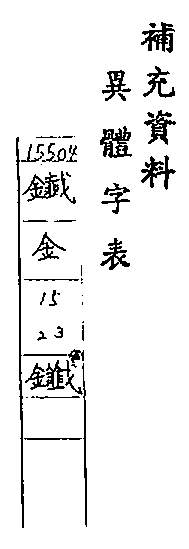 補充資料
異體字表
15504
金
15
23